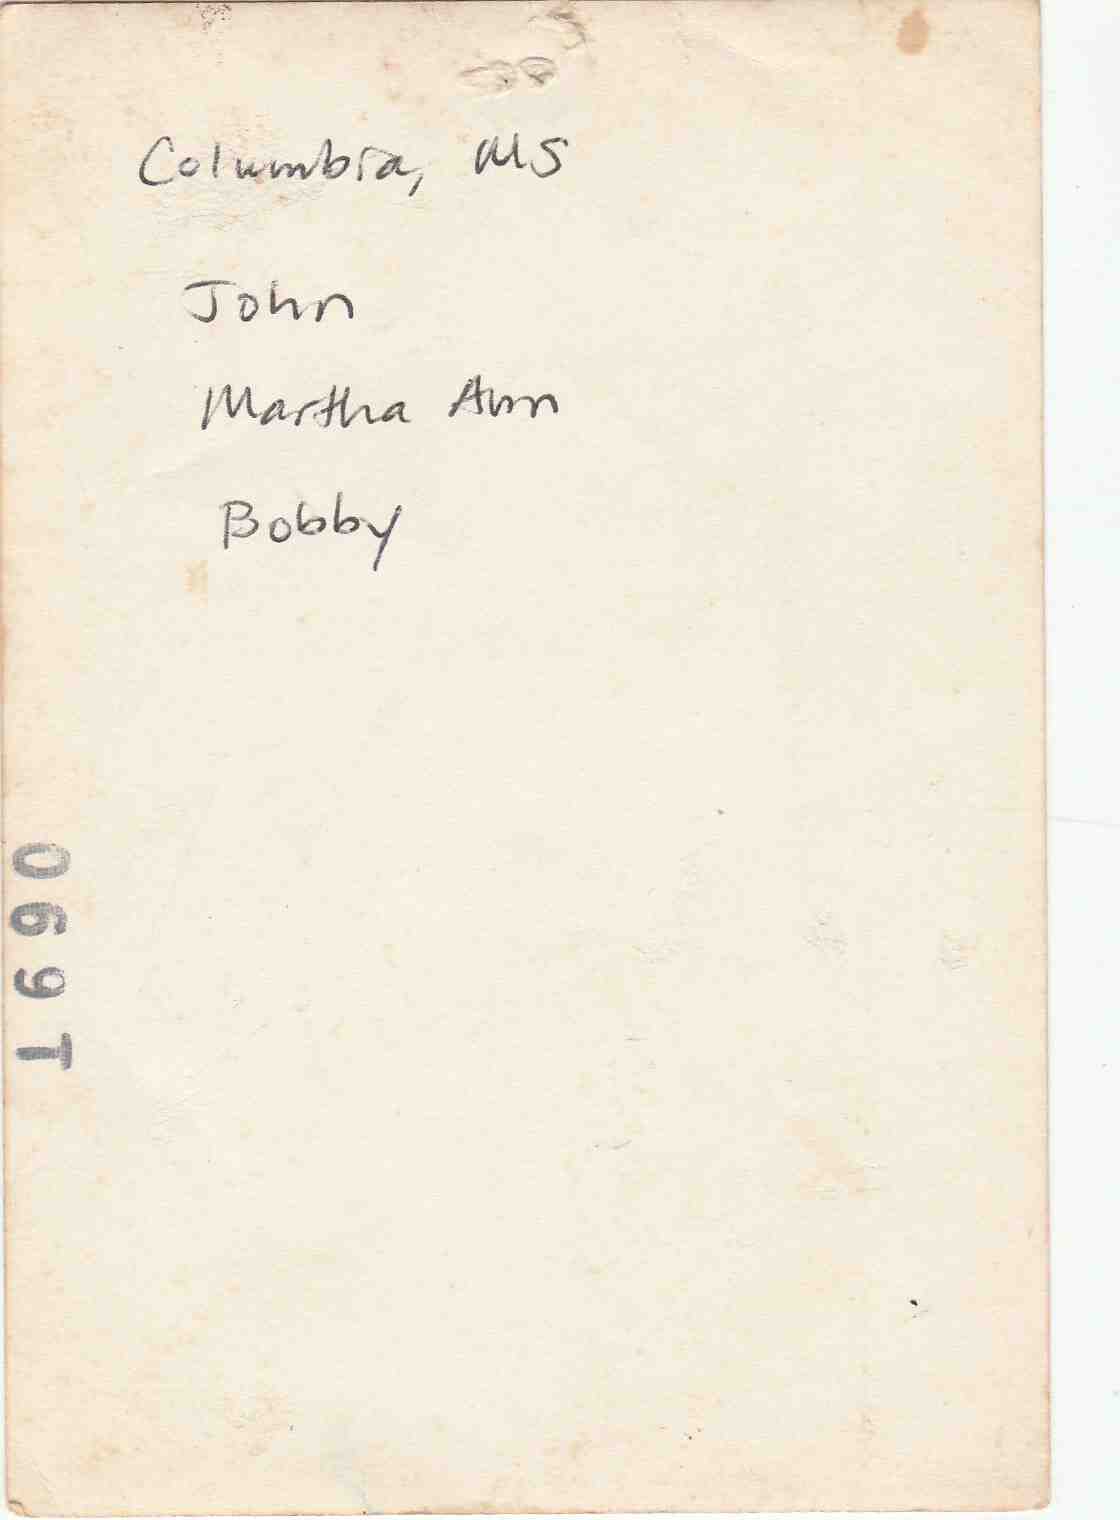 Columbia, MS
John
Martha Ann
Bobby